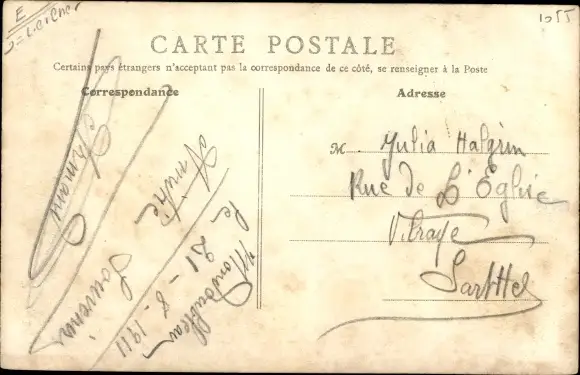 1055
E
CARTE POSTALE
Certains pays étrangers n'acceptant pas la correspondance de ce côté, se renseigner à la Poste
Correspondance
Adresse
Souvenir
Amitié
le 21-8-1911
M Julia Halgrin
Rue de L'Eglise
Vibraye
Sarthe